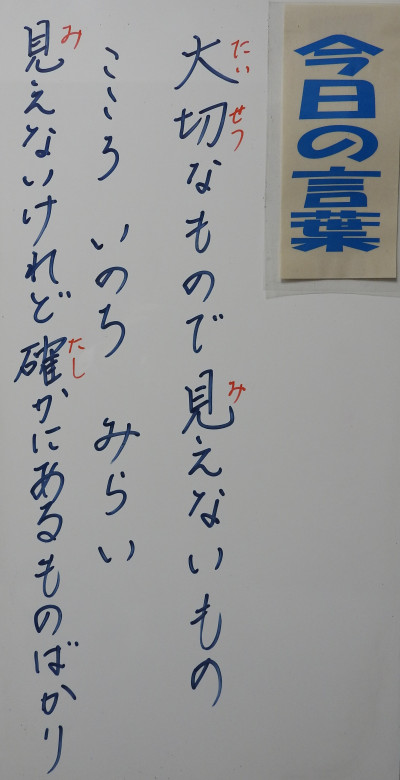 今日の言葉
大切なもので見えないもの
こころ いのち みらい
見えないけれど確かにあるものばかり
たい
せつ
み
み
たし